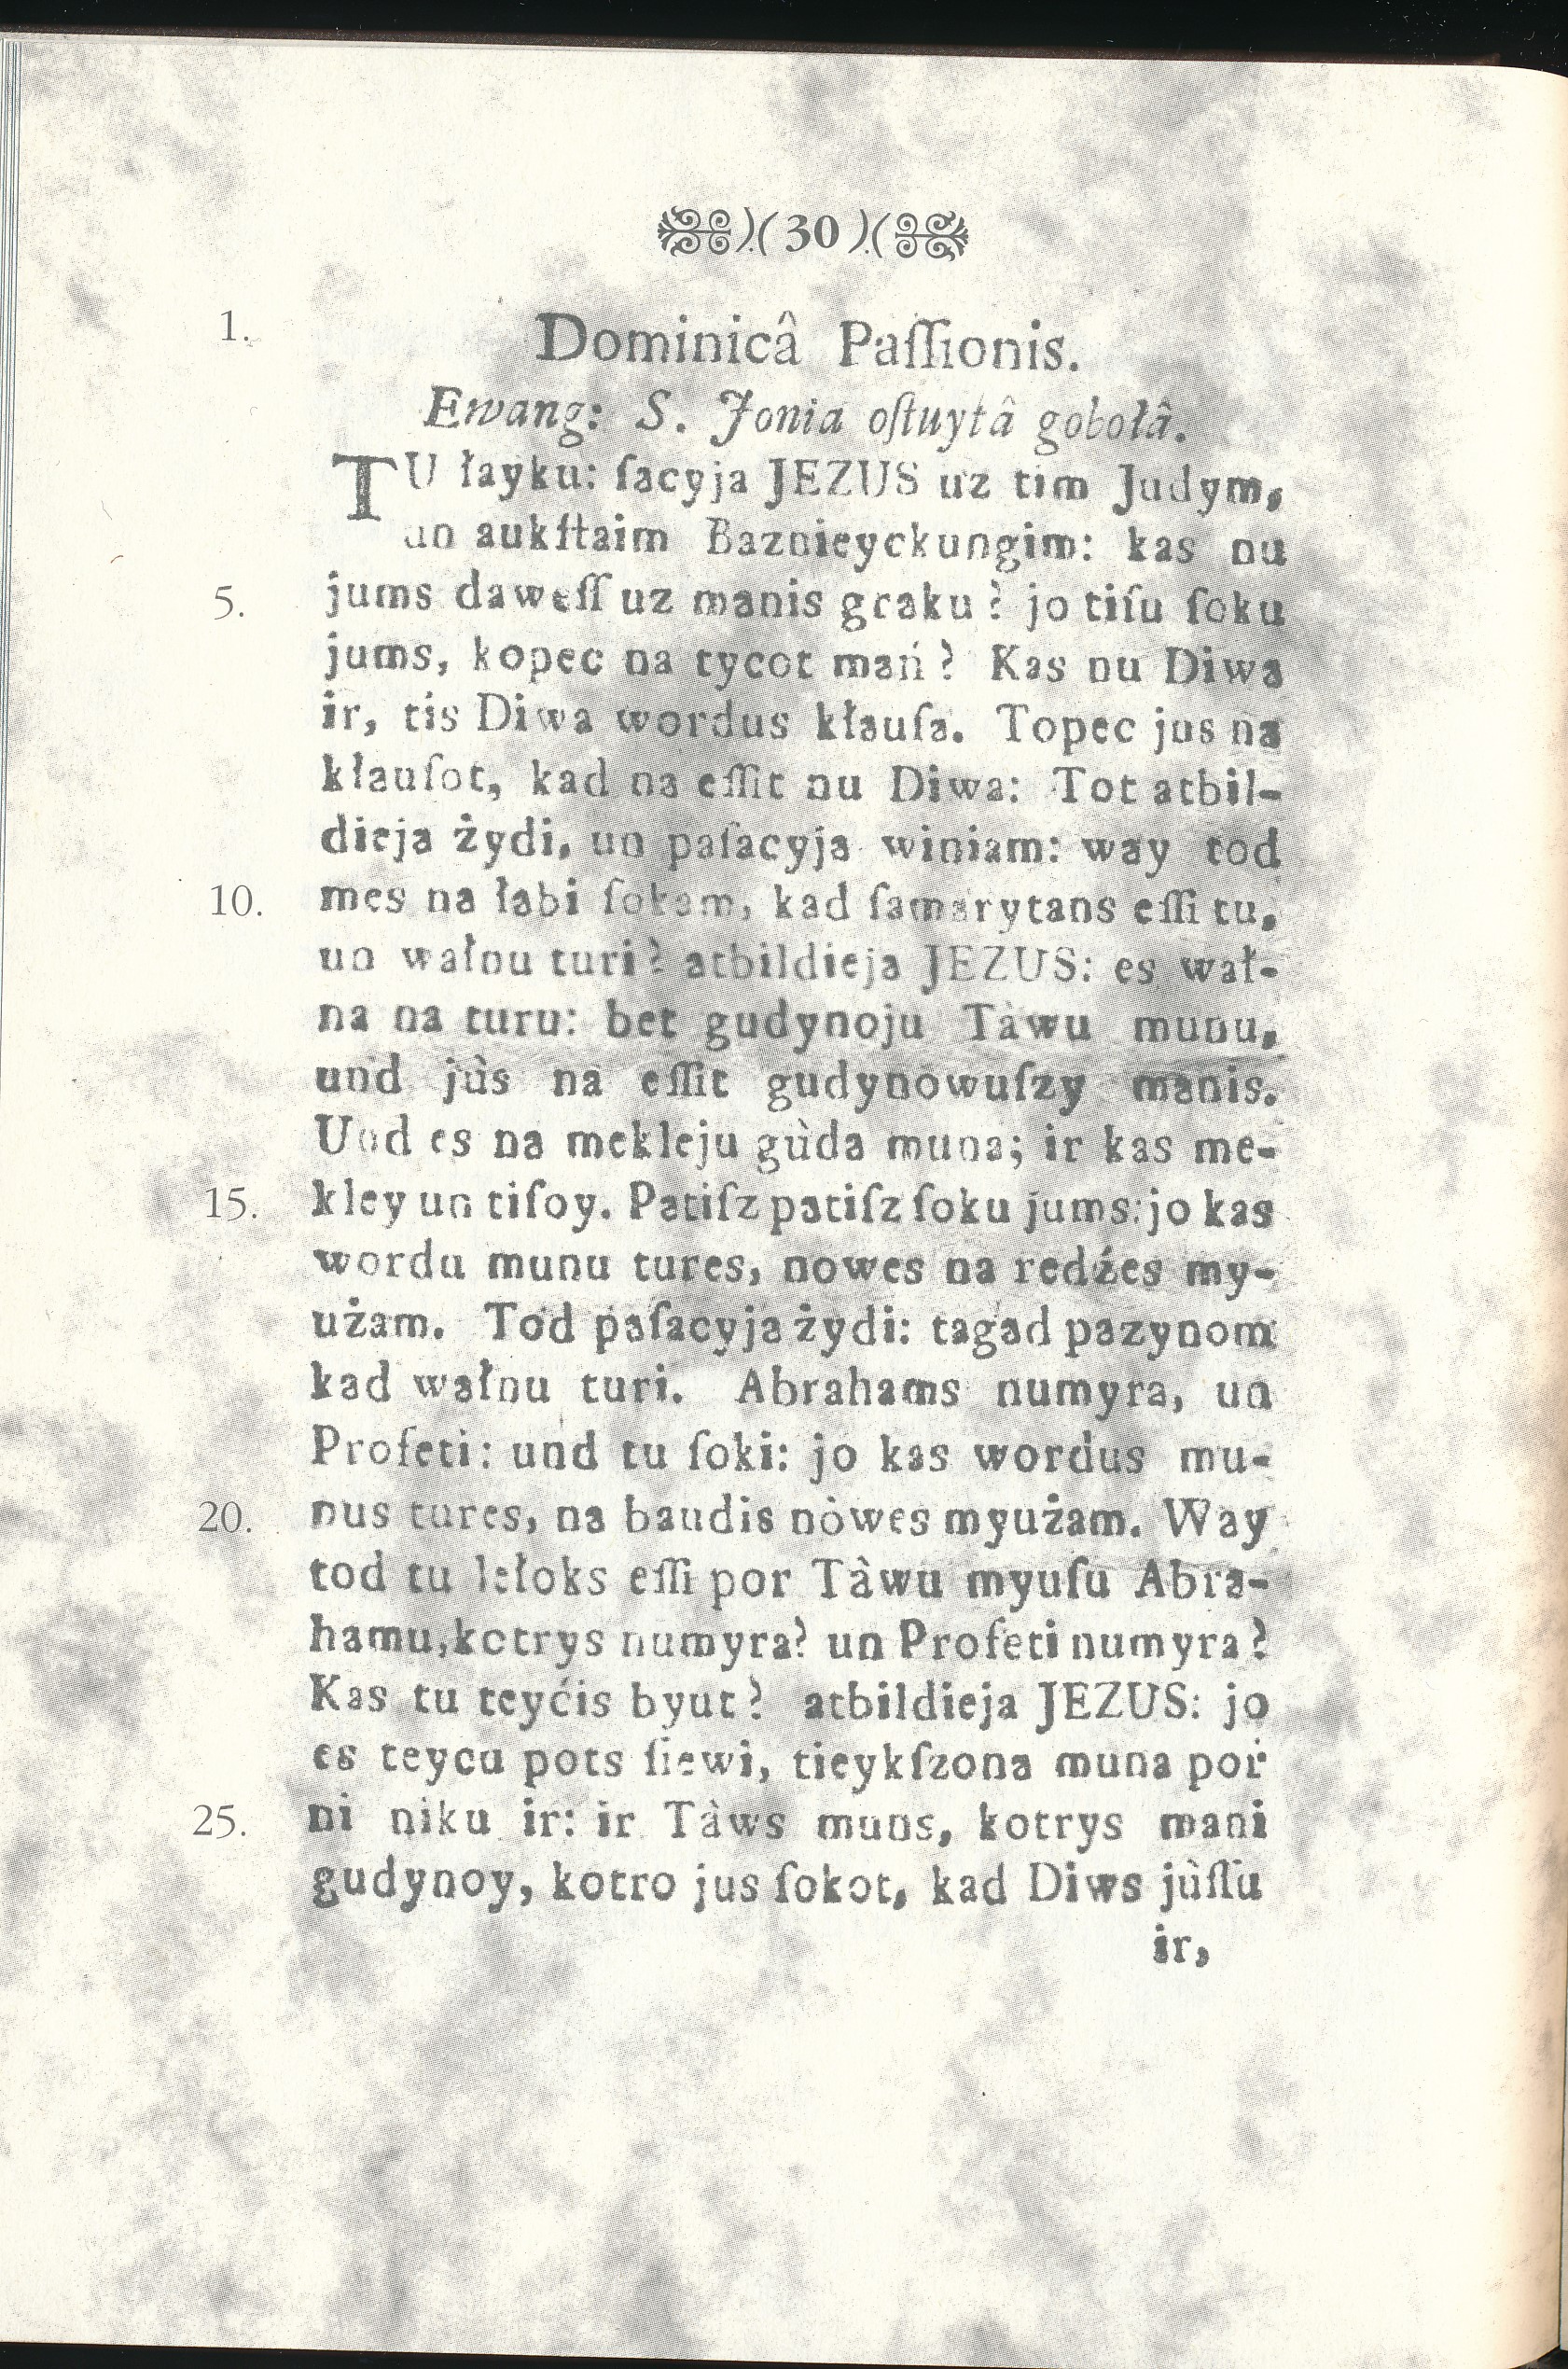 ).( 30 ).(
1. Dominicâ Paſſionis.
Ewang: S. Jonia oſtuytâ gobołâ.
TU łayku: ſacyja JEZUS uz tim Judym,
un aukſtaim Baznieyckungim: kas nu
5. jums daweſſ uz manis graku? jo tiſu ſoku
jums, kopec na tycot mań? Kas nu Diwa
ir, tis Diwa wordus kłauſa. Topec jus na
kłauſot, kad na eſſit nu Diwa: Tot atbil-
dieja żydi, un paſacyja winiam: way tod
10. mes na łabi ſokam, kad ſamarytans eſſi tu,
un wałnu turi? atbildieja JEZUS: es wał-
na na turu: bet gudynoju Tàwu munu,
und jùs na eſſit gudynowuſzy manis.
Und es na mekleju gùda muna; ir kas me-
15. kley un tiſoy. Patiſz patiſz ſoku jums: jo kas
wordu munu tures, nowes na redźes my-
użam. Tod paſacyja żydi: tagad pazynom
kad wałnu turi. Abrahams numyra, un
Profeti: und tu ſoki: jo kas wordus mu-
20. nus tures, na baudis nòwes myużam. Way
tod tu lełoks eſſi por Tàwu myuſu Abra-
hamu, kotrys numyra? un Profeti numyra?
Kas tu teyćis byut? atbildieja JEZUS: jo
es teycu pots ſiewi, tieykſzona muna por
25. ni niku ir: ir Tàws muns, kotrys mani
gudynoy, kotro jus ſokot, kad Diws jùſſu
ir,